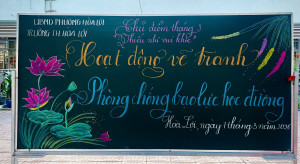 UBND PHƯỜNG HÒA LỢI
TRƯỜNG TH HÒA LỢI
Chủ điểm tháng 3
"Thiếu nhi vui khỏe"
Hoạt động vẽ tranh
Phòng chống bạo lực học đường
Hòa Lợi, ngày 1 tháng 3 năm 2026